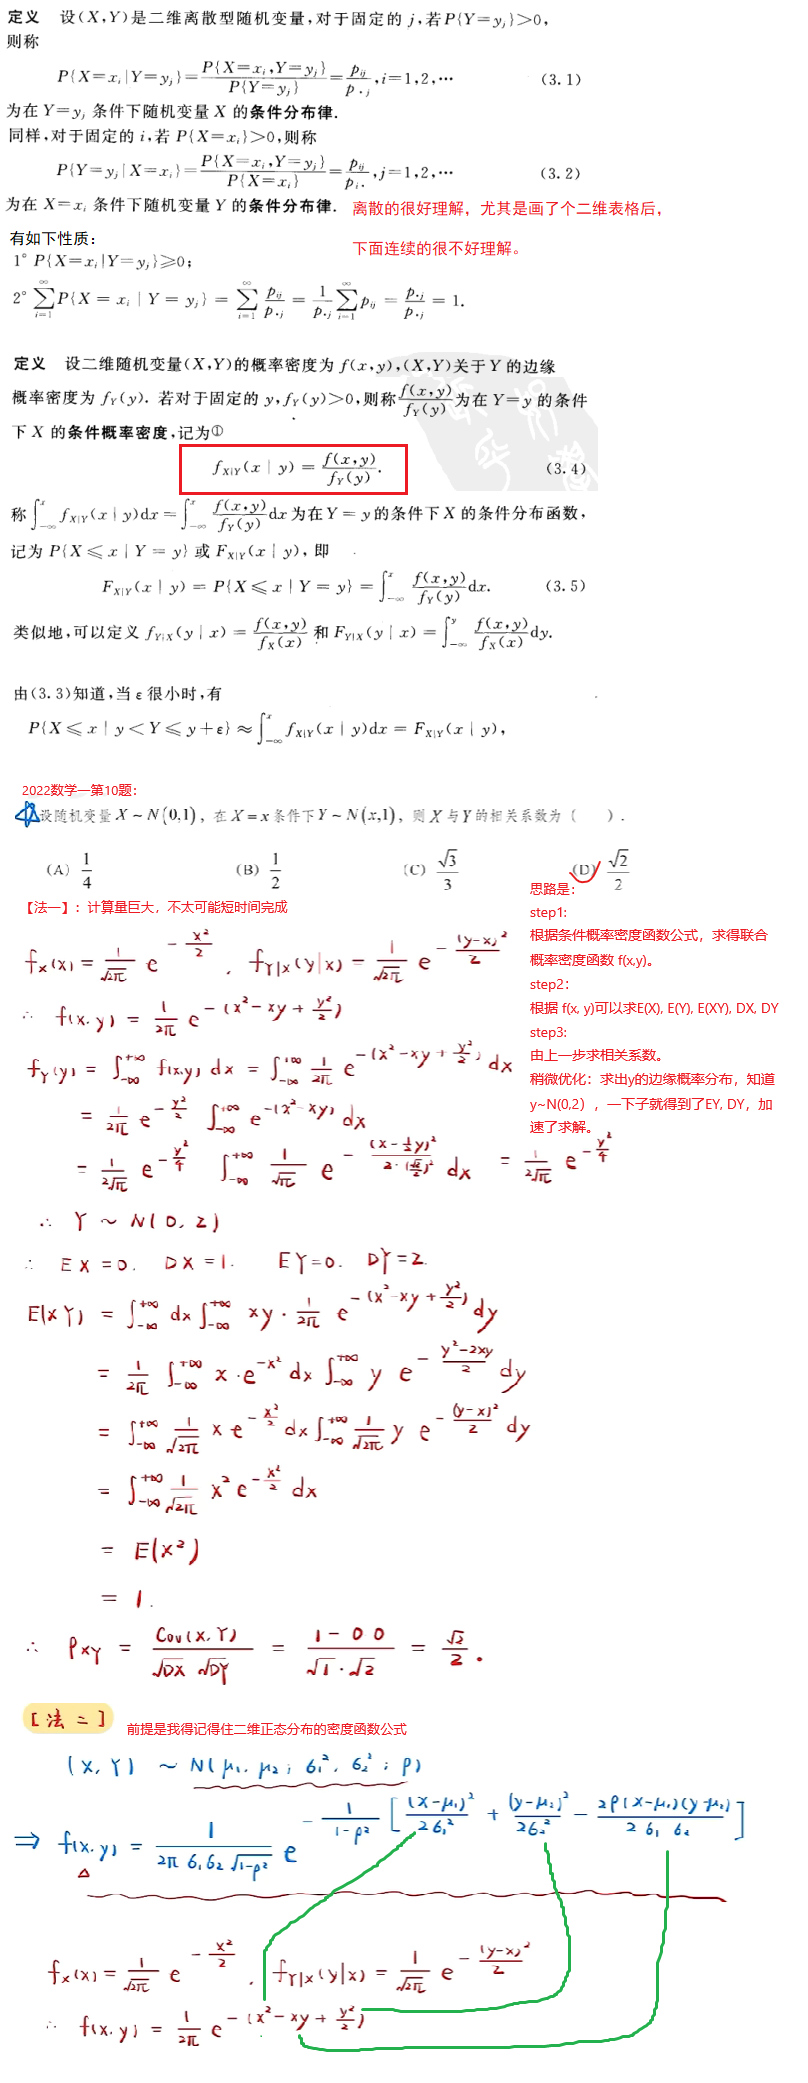 定义 设(X,Y)是二维离散型随机变量,对于固定的 j,若P{Y=y_j}>0,
则称
P{X=x_i|Y=y_j}=P{X=x_i,Y=y_j}/P{Y=y_j}=p_ij/p_·j,i=1,2,⋯ (3.1)
为在Y=y_j 条件下随机变量 X 的条件分布律.
同样,对于固定的 i,若 P{X=x_i}>0,则称
P{Y=y_j|X=x_i}=P{X=x_i,Y=y_j}/P{X=x_i}=p_ij/p_i·,j=1,2,⋯ (3.2)
为在 X=x_i 条件下随机变量 Y 的条件分布律. 离散的很好理解，尤其是画了个二维表格后，
下面连续的很不好理解。
有如下性质：
1° P{X=x_i|Y=y_j}≥0;
2° ∑_{i=1}^∞ P{X = x_i | Y = y_j} = ∑_{i=1}^∞ p_ij/p_·j = 1/p_·j ∑_{i=1}^∞ p_ij = p_·j/p_·j = 1.
定义 设二维随机变量(X,Y)的概率密度为 f(x,y),(X,Y)关于Y 的边缘
概率密度为 f_Y(y). 若对于固定的 y,f_Y(y)>0,则称 f(x,y)/f_Y(y) 为在Y=y 的条件
下 X 的条件概率密度,记为①
f_{X|Y}(x | y) = f(x,y)/f_Y(y). (3.4)
称∫_{-∞}^x f_{X|Y}(x | y)dx=∫_{-∞}^x f(x,y)/f_Y(y) dx 为在Y = y的条件下X 的条件分布函数,
记为 P{X ≤ x | Y = y} 或 F_{X|Y}(x | y), 即
F_{X|Y}(x | y) = P{X ≤ x | Y = y} = ∫_{-∞}^x f(x,y)/f_Y(y) dx. (3.5)
类似地,可以定义 f_{Y|X}(y | x) = f(x,y)/f_X(x) 和 F_{Y|X}(y | x) = ∫_{-∞}^y f(x,y)/f_X(x) dy.
由(3.3)知道,当 ε 很小时,有
P{X ≤ x | y < Y ≤ y+ε} ≈ ∫_{-∞}^x f_{X|Y}(x | y)dx = F_{X|Y}(x | y),
2022数学一第10题：
设随机变量 X ~ N(0,1)，在 X = x 条件下 Y ~ N(x,1)，则 X 与 Y 的相关系数为（ ）.
(A) 1/4 (B) 1/2 (C) √3/3 (D) √2/2
思路是：
step1:
根据条件概率密度函数公式，求得联合
概率密度函数 f(x,y)。
step2:
根据 f(x, y)可以求E(X), E(Y), E(XY), DX, DY
step3:
由上一步求相关系数。
稍微优化：求出y的边缘概率分布，知道
y~N(0,2），一下子就得到了EY, DY，加
速了求解。
【法一】：计算量巨大，不太可能短时间完成
f_X(x) = 1/√2π e^{-x²/2} , f_{Y|X}(y|x) = 1/√2π e^{-(y-x)²/2}
∴ f(x,y) = 1/2π e^{-(x²-xy+y²/2)}
f_Y(y) = ∫_{-∞}^{+∞} f(x,y) dx = ∫_{-∞}^{+∞} 1/2π e^{-(x²-xy+y²/2)} dx
= 1/2π e^{-y²/2} ∫_{-∞}^{+∞} e^{-(x²-xy)} dx
= 1/2√π e^{-y²/4} ∫_{-∞}^{+∞} 1/√π e^{-(x-½y)²/2·(√2/2)²} dx = 1/2√π e^{-y²/4}
∴ Y ~ N(0, 2)
∴ EX = 0. DX = 1. EY = 0. DY = 2.
E(XY) = ∫_{-∞}^{+∞} dx ∫_{-∞}^{+∞} xy · 1/2π e^{-(x²-xy+y²/2)} dy
= 1/2π ∫_{-∞}^{+∞} x·e^{-x²} dx ∫_{-∞}^{+∞} y e^{-(y²-2xy)/2} dy
= ∫_{-∞}^{+∞} 1/√2π x e^{-x²/2} dx ∫_{-∞}^{+∞} 1/√2π y e^{-(y-x)²/2} dy
= ∫_{-∞}^{+∞} 1/√2π x² e^{-x²/2} dx
= E(X²)
= 1.
∴ ρ_XY = Cov(X,Y)/√DX √DY = 1-0·0/√1·√2 = √2/2.
【法二】 前提是我得记得住二维正态分布的密度函数公式
(X, Y) ~ N(μ₁, μ₂; σ₁², σ₂²; ρ)
⇒ f(x,y) = 1/2πσ₁σ₂√1-ρ² e^{-1/(1-ρ²)[(x-μ₁)²/2σ₁² + (y-μ₂)²/2σ₂² - 2ρ(x-μ₁)(y-μ₂)/2σ₁σ₂]}
f_X(x) = 1/√2π e^{-x²/2} , f_{Y|X}(y|x) = 1/√2π e^{-(y-x)²/2}
∴ f(x,y) = 1/2π e^{-(x²-xy+y²/2)}